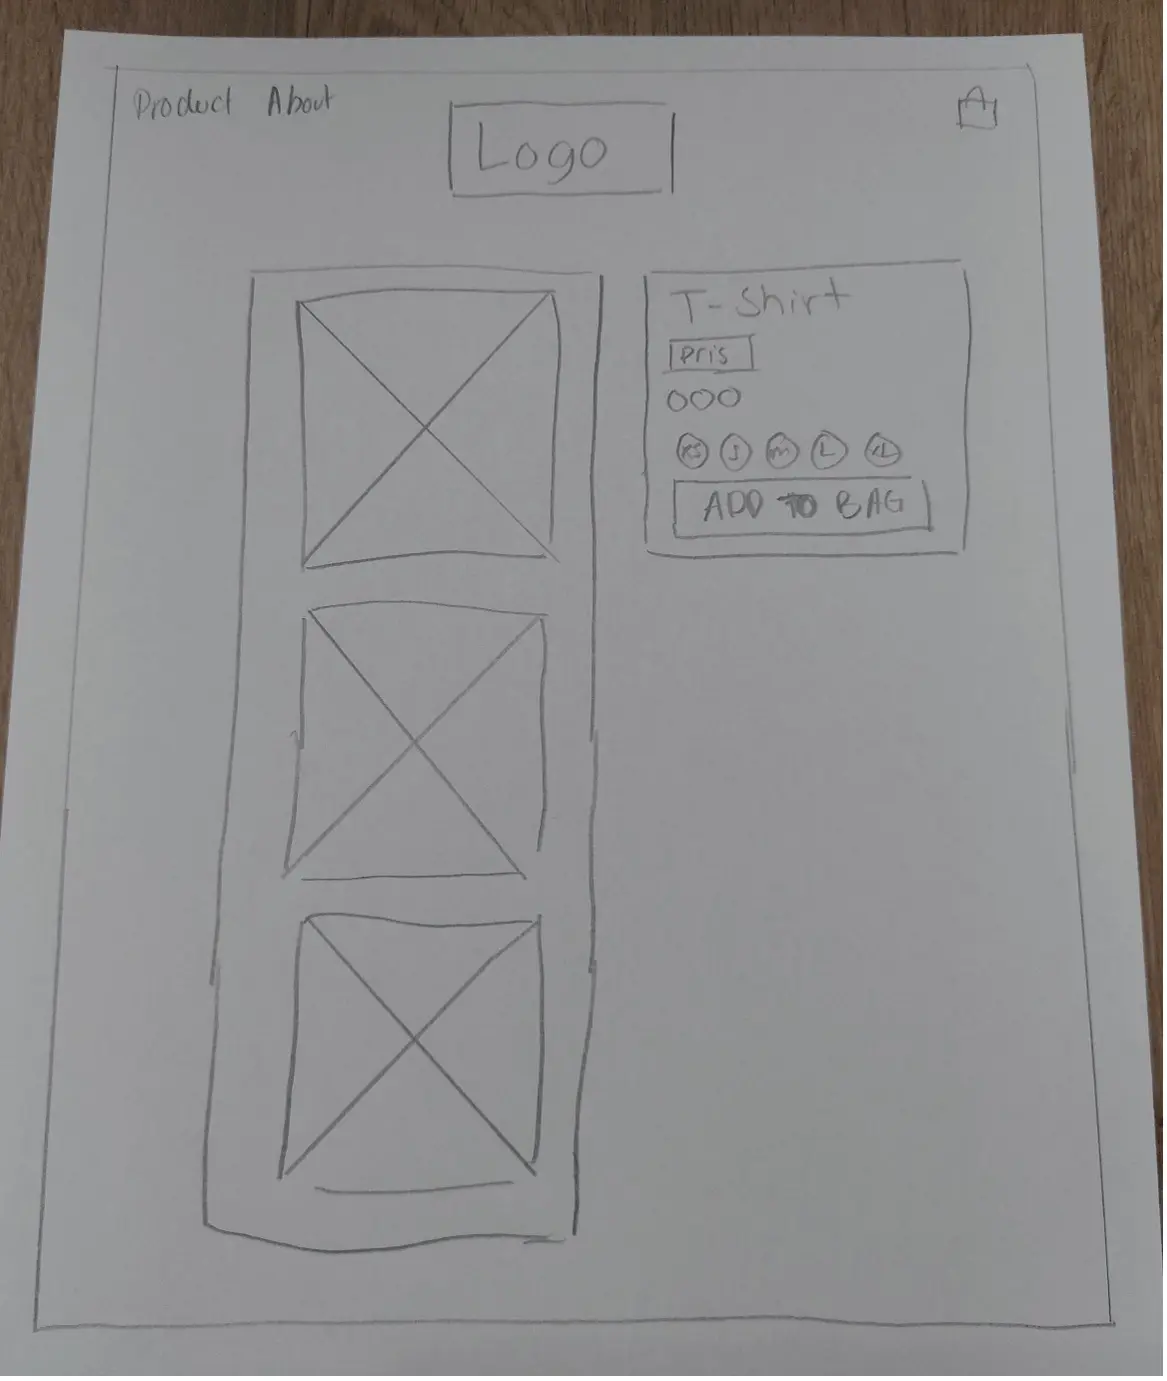 Product About
Logo
T-Shirt
Pris
XS S M L XL
ADD TO BAG